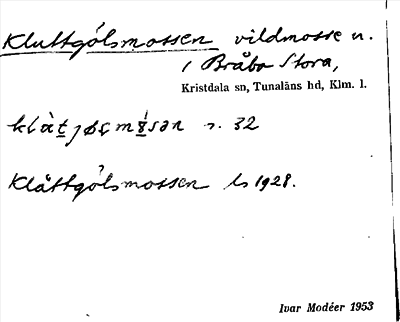 Kluttgölsmossen vildmosse n.
i Bråbo Stora,
Kristdala sn, Tunaläns hd, Klm. l.
s. 32
Klåttgölsmossen ls 1928.
Ivar Modéer 1953